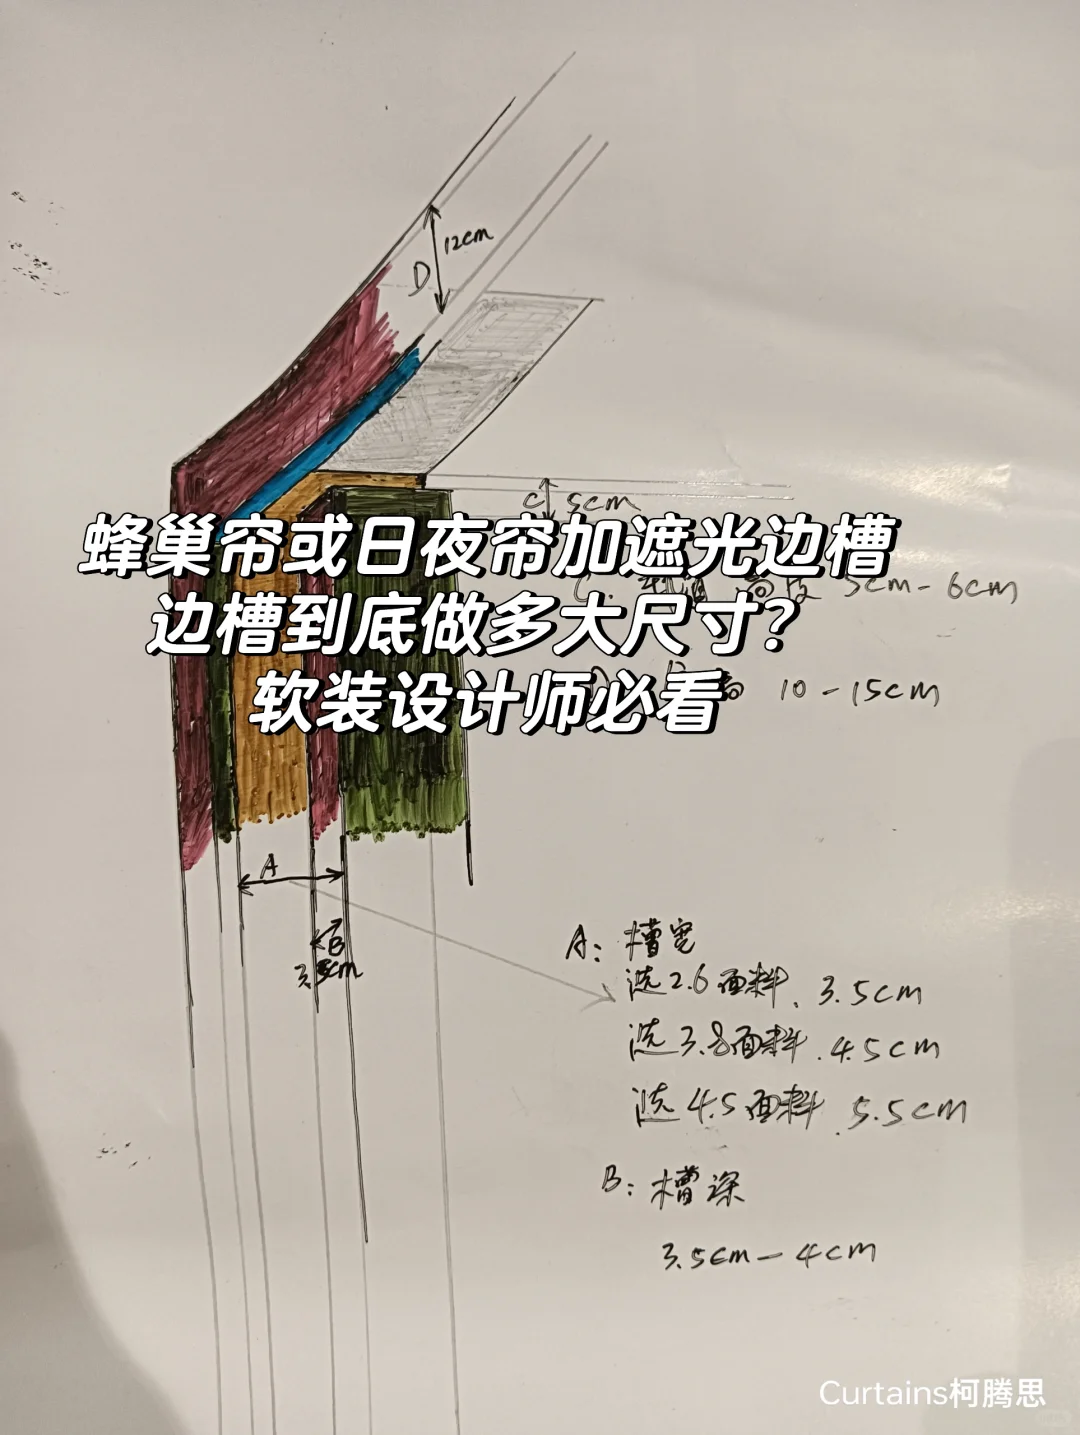 12cm
D
C 5cm
蜂巢帘或日夜帘加遮光边槽
边槽到底做多大尺寸？
软装设计师必看
高度 5cm-6cm
高 10-15cm
A
B
3.5cm
A: 槽宽
选2.6面料. 3.5cm
选3.8面料. 4.5cm
选4.5面料. 5.5cm
B: 槽深
3.5cm-4cm
Curtains柯腾思